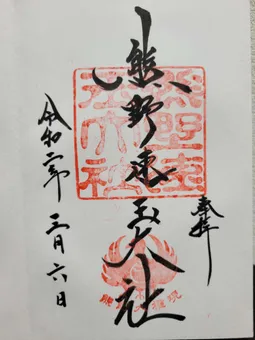 奉拝
熊野速玉大社
令和二年三月六日
熊野速玉大社